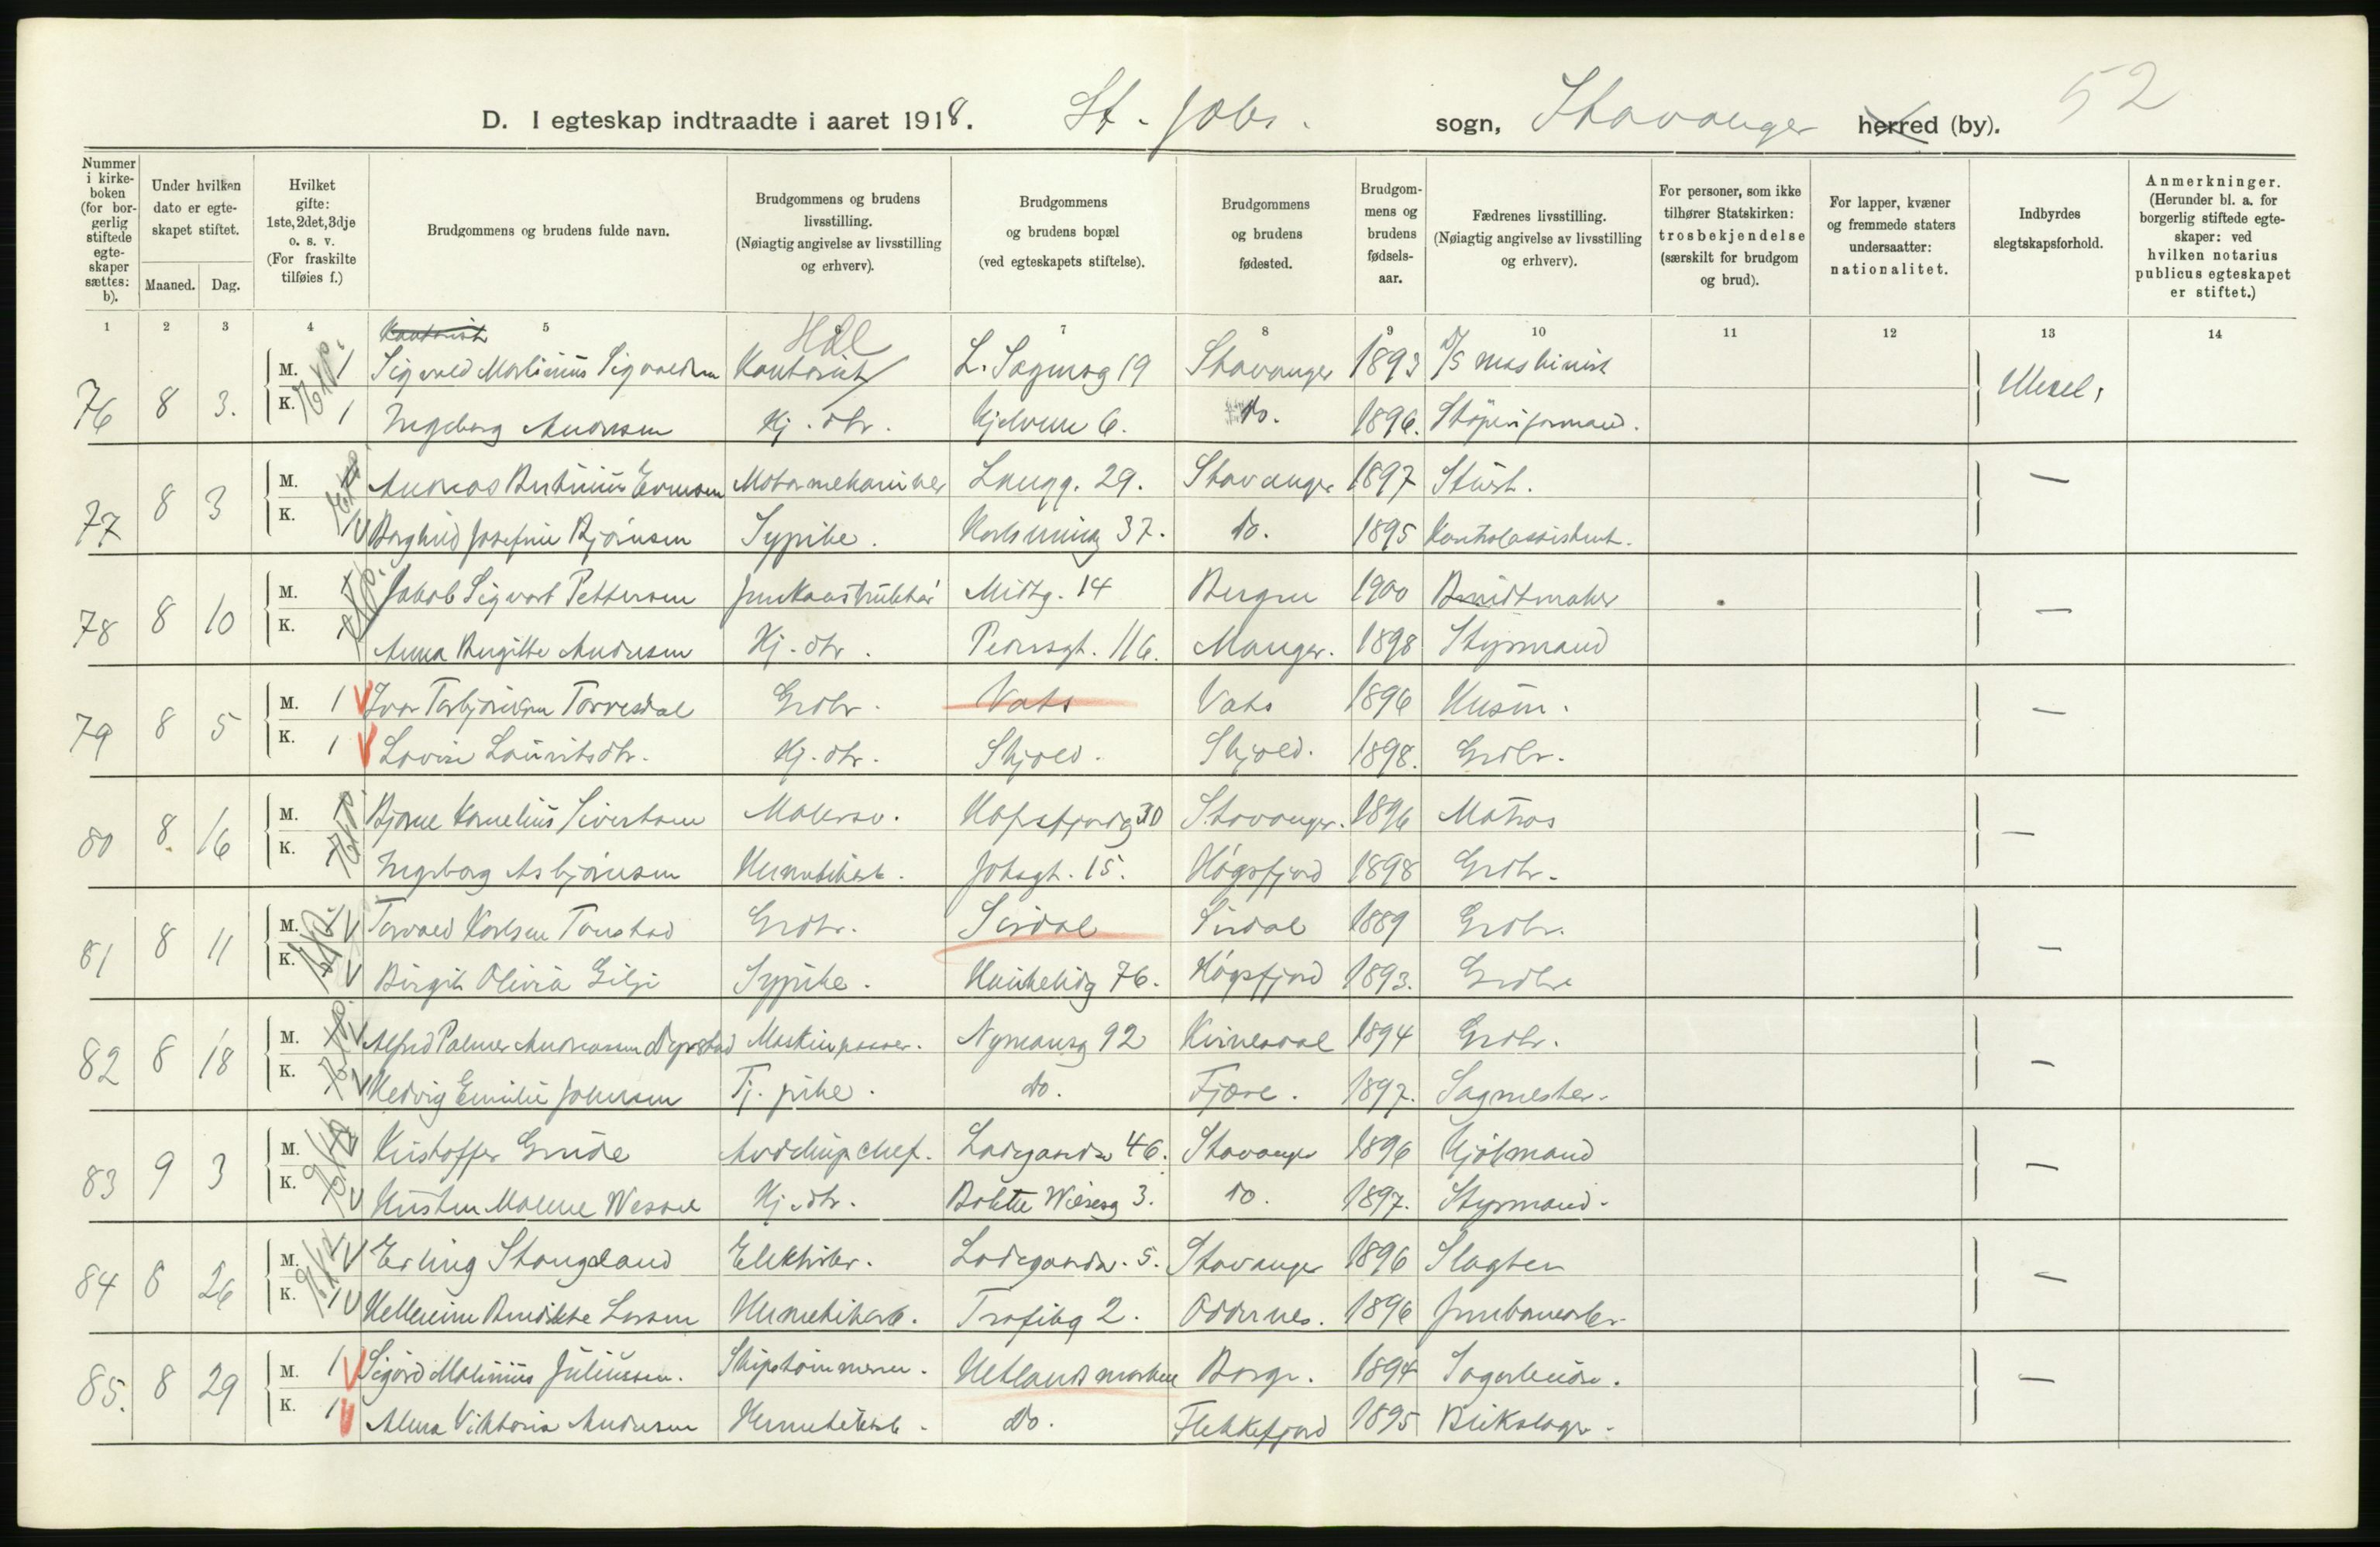 D. I egteskap indtraadte i aaret 1918. St. Johs. sogn, Stavanger herred (by). 52
Nummer i kirkeboken (for borgerlig stiftede egteskaper sættes: b).
Under hvilken dato er egteskapet stiftet.
Maaned. Dag.
Hvilket gifte: 1ste, 2det, 3dje o. s. v. (For fraskilte tilføies f.)
Brudgommens og brudens fulde navn.
Brudgommens og brudens livsstilling. (Nøiagtig angivelse av livsstilling og erhverv).
Brudgommens og brudens bopæl (ved egteskapets stiftelse).
Brudgommens og brudens fødested.
Brudgommens og brudens fødselsaar.
Fædrenes livsstilling. (Nøiagtig angivelse av livsstilling og erhverv).
For personer, som ikke tilhører Statskirken: trosbekjendelse (særskilt for brudgom og brud).
For lapper, kvæner og fremmede staters undersaatter: nationalitet.
Indbyrdes slegtskapsforhold.
Anmerkninger. (Herunder bl. a. for borgerlig stiftede egteskaper: ved hvilken notarius publicus egteskapet er stiftet.)
1 2 3 4 5 7 8 9 10 11 12 13 14
Kontorist Hdl
76 8 3. M. 1 Sigvald Martinius Sigvaldsen Kontorist L. Sagmog 19 Stavanger 1893 D/S maskinist
K. 1 Ingeborg Andersen Hj. dtr. Kjelvene 6. do. 1896. Støperiformand.
77 8 3 M. Andreas Bertinius Evensen Motormekaniker Langg. 29. Stavanger 1897 Stuert. —
K. Borghild Josefine Bjørnsen Sypike. Karlsminneg 37. do. 1895 Kontorassistent.
78 8 10 M. Jakob Sigvart Pettersen Jernkonstruktør Midtg. 14 Bergen 1900 Bundtmaker —
K. Anna Birgitte Andersen Hj. dtr. Pedersgt. 116. Manger. 1898 Styrmand
79 8 5 M. 1 V Ivar Torbjørnsen Torvesdal Grdbr. Vats Vats 1896 Husm. —
K. 1 V Lovise Lauritsdtr. Hj. dtr. Skjold. Skjold. 1898. Grdbr.
80 8. 16 M. Bjarne Kornelius Sivertsen Malersv. Hafsfjordg 30 Stavanger. 1896 Matros —
K. Ingeborg Asbjørnsen Hermetikarb. Johsgt. 15. Høgsfjord 1898 Grdbr.
81 8 11 M. V Torvald Karlsen Tonstad Grdbr. Sirdal Sirdal 1889 Grdbr. —
K. V Birgit Olivia Gilje Sypike. Haukeligt 76. Høgsfjord 1893. Grdbr
82 8 18 M. V Alfred Palmer Andreassen Maskinpasser. Nymansg 92 Kvinesdal 1894 Grdbr. —
K. V Hedvig Emilie Johnsen Tj. pike. do. Fjære. 1897. Sagmester.
83 9 3 M. Kristoffer Grude Avdelingschef. Ladegaardsv 46. Stavanger 1896 Kjølmand —
K. V Kirsten Malene Wessel Hj. dtr. Bolette Wiesesg 3. do. 1897. Styrmand.
84 8 26 M. V Erling Stangeland Elektriker. Ladegaardsv. 5. Stavanger 1896 Slagter —
K. 1 V Hellerine Benedikte Larsen Hermetikarb. Trofibg 2. Oddernes. 1896 Jernbanearb.
85. 8 29 M. 1 V Sigurd Matinius Juliussen. Skipstømmerm. Hetlandsmarken Borge. 1894 Sagarbeider. —
K. 1 V Alma Viktoria Andersen Hermetikarb. do. Flekkefjord 1895 Blikslager.